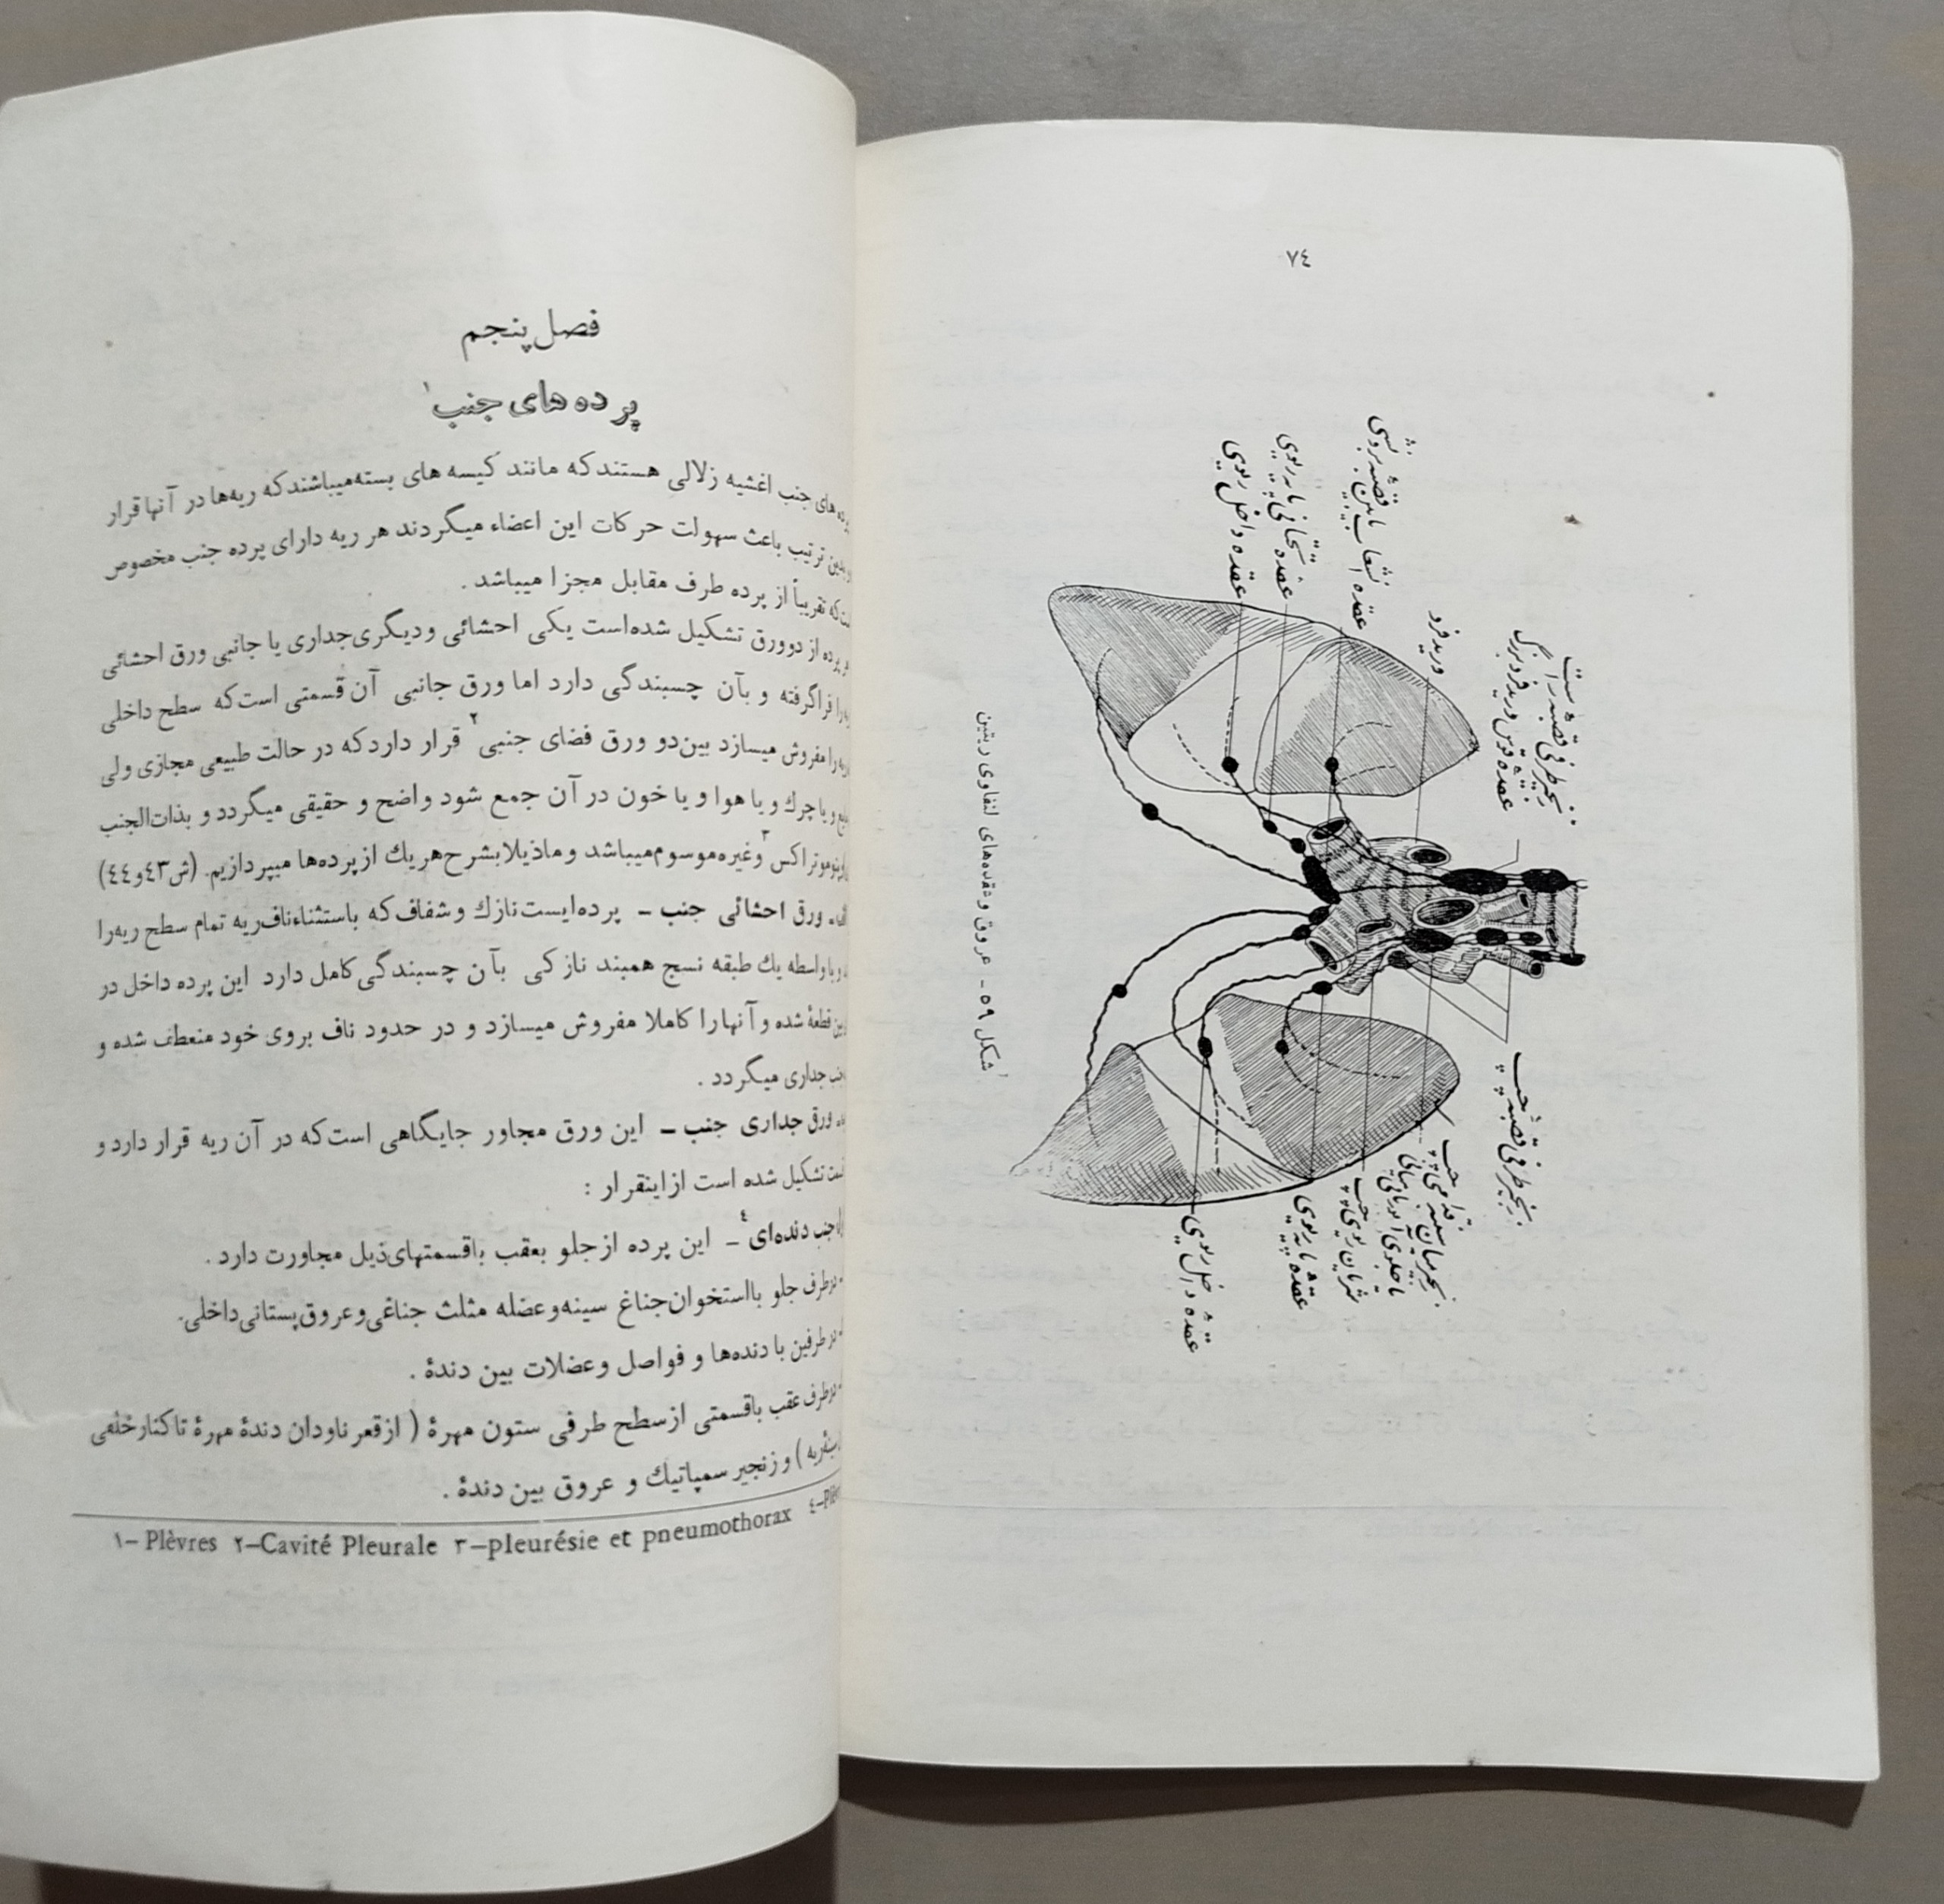 ٧٤
عقده داخل ریوی
عقده تحتانی نایه ریوی
عقده انشعاب نایژه قصبه‌الریوی
ورید فرد
عقده قوس ورید فرد بزرگ
زنجیر طرفی قصبه راست
زنجیر طرفی قصبه چپ
شریان ریوی چپ
عقده نایه ریوی
عقده داخل ریوی
شکل ٥٩ ـ عروق وعقده‌های لنفاوی ریتین
فصل پنجم
پرده های جنب ١
های جنب اغشیه زلالی هستندکه مانند کیسه های بسته‌میباشندکه ریه‌ها در آنها قرار
ترتیب باعث سهولت حرکات این اعضاء میگردند هر ریه دارای پرده جنب مخصوص
تقریباً از پرده طرف مقابل مجزا میباشد .
پرده از دوورق تشکیل شده‌است یکی احشائی ودیگری‌جداری یا جانبی ورق احشائی
فراگرفته و بآن چسبندگی دارد اما ورق جانبی آن قسمتی است‌که سطح داخلی
را مفروش میسازد بین‌دو ورق فضای جنبی ٢ قرار داردکه در حالت طبیعی مجازی ولی
ویاچرك ویا هوا ویا خون در آن جمع شود واضح و حقیقی میگردد و بذات‌الجنب
اکس ٣ وغیره‌موسوم‌میباشد وماذیلابشرح‌هریك ازپرده‌ها میپردازیم. (ش٤٣و٤٤)
ورق احشائی جنب ـ پرده‌ایست‌نازك وشفاف‌که باستثناءناف‌ریه تمام سطح ریه‌را
واسطه یك طبقه نسج همبند نازکی بآن چسبندگی‌کامل دارد این پرده داخل در
قطعهٔ شده وآنهارا کاملا مفروش میسازد و در حدود ناف بروی خود منعطف شده و
جداری میگردد .
ورق جداری جنب ـ این ورق مجاور جایگاهی است‌که در آن ریه قرار دارد و
تشکیل شده است ازاینقرار :
جنب دنده‌ای ٤ ـ این پرده ازجلو بعقب باقسمتهای‌ذیل مجاورت دارد .
طرف جلو بااستخوان‌جناغ سینه‌وعضله مثلث جناغی‌وعروق‌پستانی‌داخلی.
طرفین با دنده‌ها و فواصل وعضلات بین دندهٔ .
طرف عقب باقسمتی ازسطح طرفی ستون مهرهٔ ( ازقعر ناودان دندهٔ مهرهٔ تاکنارخلفی
ریه ) وزنجیر سمپاتیك و عروق بین دندهٔ .
١– Plèvres ٢–Cavité Pleurale ٣–pleurésie et pneumothorax ٤–